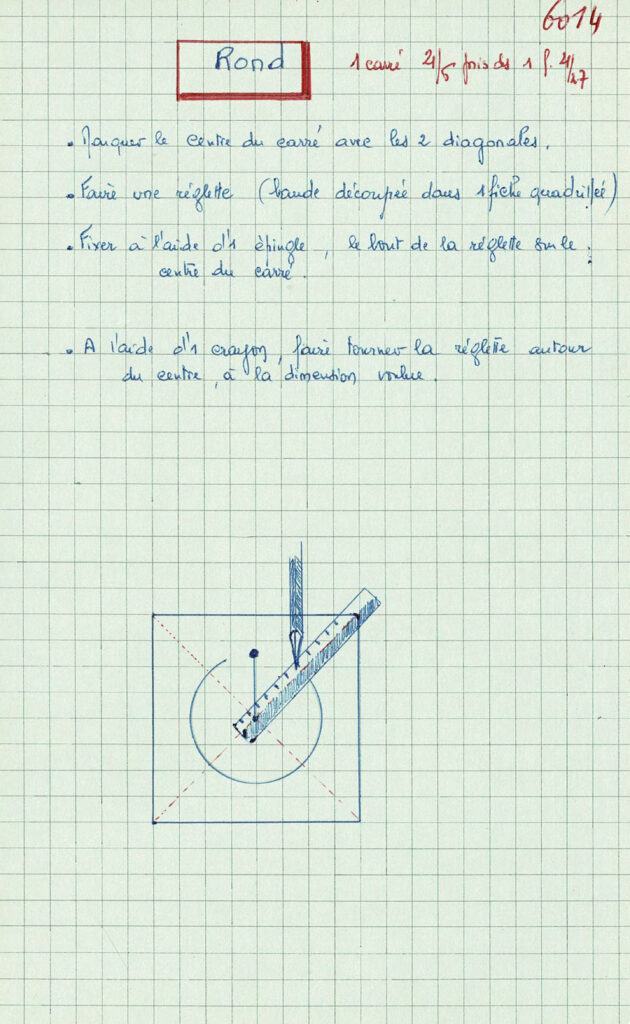 6014
Rond
1 carré 21/5 pris ds 1 f. 21/27
. Marquer le centre du carré avec les 2 diagonales.
. Faire une réglette (bande découpée dans 1 fiche quadrillée)
. Fixer à l'aide d'1 épingle, le bout de la réglette sur le
centre du carré.
. A l'aide d'1 crayon, faire tourner la réglette autour
du centre, à la dimention voulue.